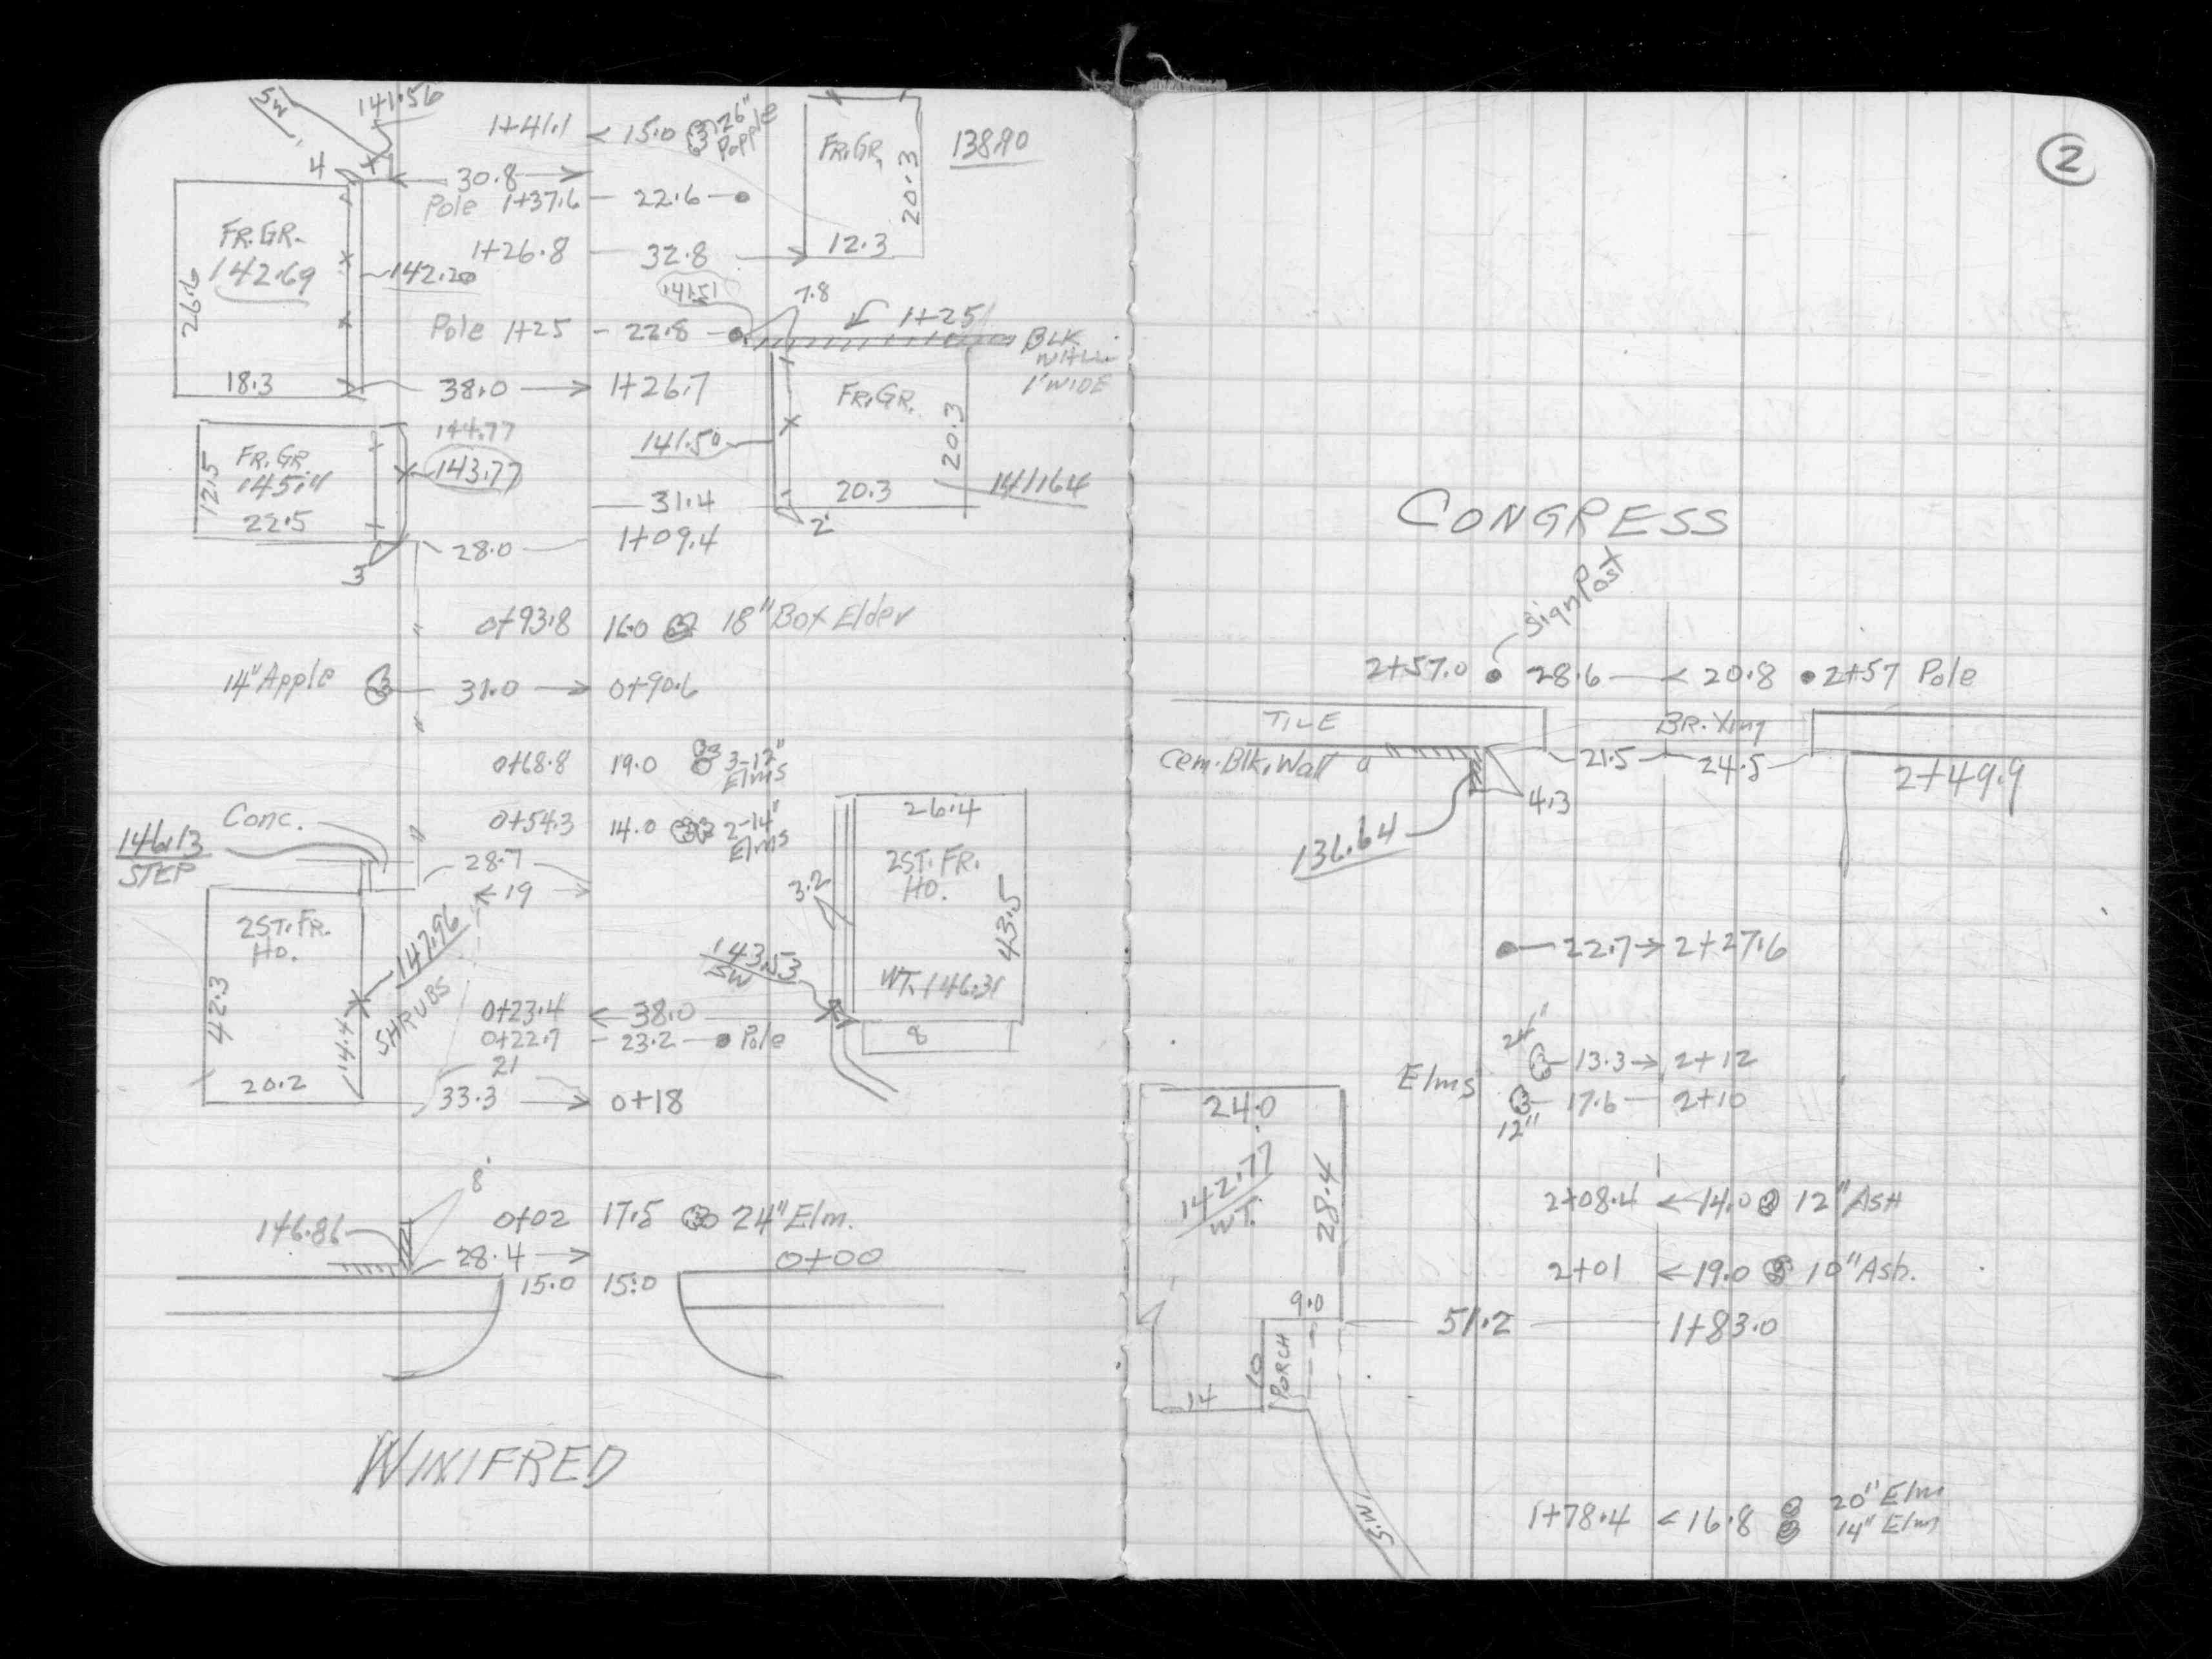 SW
141.56
1+41.1 < 15.0 26" Popple
4
30.8
Pole 1+37.6 - 22.6
FR.GR.
20.3
12.3
138.90
1+26.8 - 32.8
FR.GR.
142.69
26.6
18.3
142.20
141.51
7.8
1+25
Pole 1+25 - 22.8
BLK
WALL
1' WIDE
38.0 → 1+26.7
FR.GR.
20.3
20.3
141.50
141.64
2'
144.77
143.77
FR.GR.
12.5
22.5
3
31.4
28.0
1+09.4
0+93.8 16.0 18" Box Elder
14" Apple 31.0 → 0+90.6
0+68.8 19.0 3-12" Elms
0+54.3 14.0 2-14" Elms
Conc.
146.13
STEP
28.7
←19→
2ST. FR.
HO.
42.3
20.2
14.4
147.96
SHRUBS
26.4
2ST. FR.
HO.
43.5
WT. 146.31
8
3.2
143.53
SW
0+23.4 ← 38.0
0+22.7 - 23.2 Pole
21
33.3 → 0+18
8'
146.86
0+02 17.5 24" Elm.
28.4 →
0+00
15.0 15.0
WINIFRED
2
CONGRESS
Sign Post
2+57.0 28.6 < 20.8 2+57 Pole
TILE
BR. Xing
Cem. Blk. Wall
21.5 24.5
2+49.9
4.3
136.64
22.7 → 2+27.6
24"
Elms
13.3 → 2+12
17.6 - 2+10
12"
24.0
142.77
WT.
28.4
2+08.4 ← 14.0 12" ASH
2+01 ← 19.0 10" Ash.
9.0
51.2 1+83.0
10
PORCH
14
S.W.
1+78.4 < 16.8 20" Elm
14" Elm